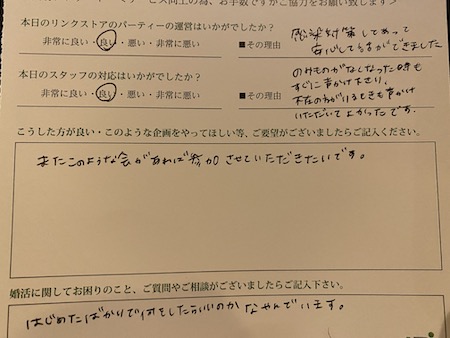 サービス向上の為、お手数ですがご協力をお願い致します＞
本日のリンクストアのパーティーの運営はいかがでしたか？
非常に良い・良い・悪い・非常に悪い ■その理由
感染対策してあって
安心して参加ができました
本日のスタッフの対応はいかがでしたか？
非常に良い・良い・悪い・非常に悪い ■その理由
のみものがなくなった時も
すぐに声かけ下さり、
不在の
いただいてよかったです。
こうした方が良い・このような企画をやってほしい等、ご要望がございましたらご記入ください。
またこのような会があれば参加させていただきたいです。
婚活に関してお困りのこと、ご質問やご相談がございましたらご記入下さい。
はじめたばかりで何をしたらいいのかなやんでいます。